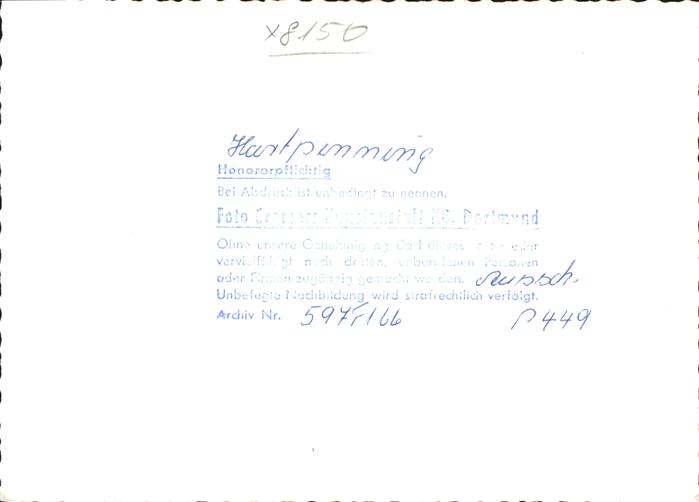 x8150
Hartpenning
Honorarpflichtig
Bei Abdruck ist unbedingt zu nennen.
Foto Cramers Kunstanstalt KG. Dortmund
Ohne unsere Genehmigung darf dieses oder
vervielfältigt noch dritten, unberufenen Personen
oder Firmen zugängig gemacht werden. Aussch.
Unbefugte Nachbildung wird strafrechtlich verfolgt.
Archiv Nr. 166 P449